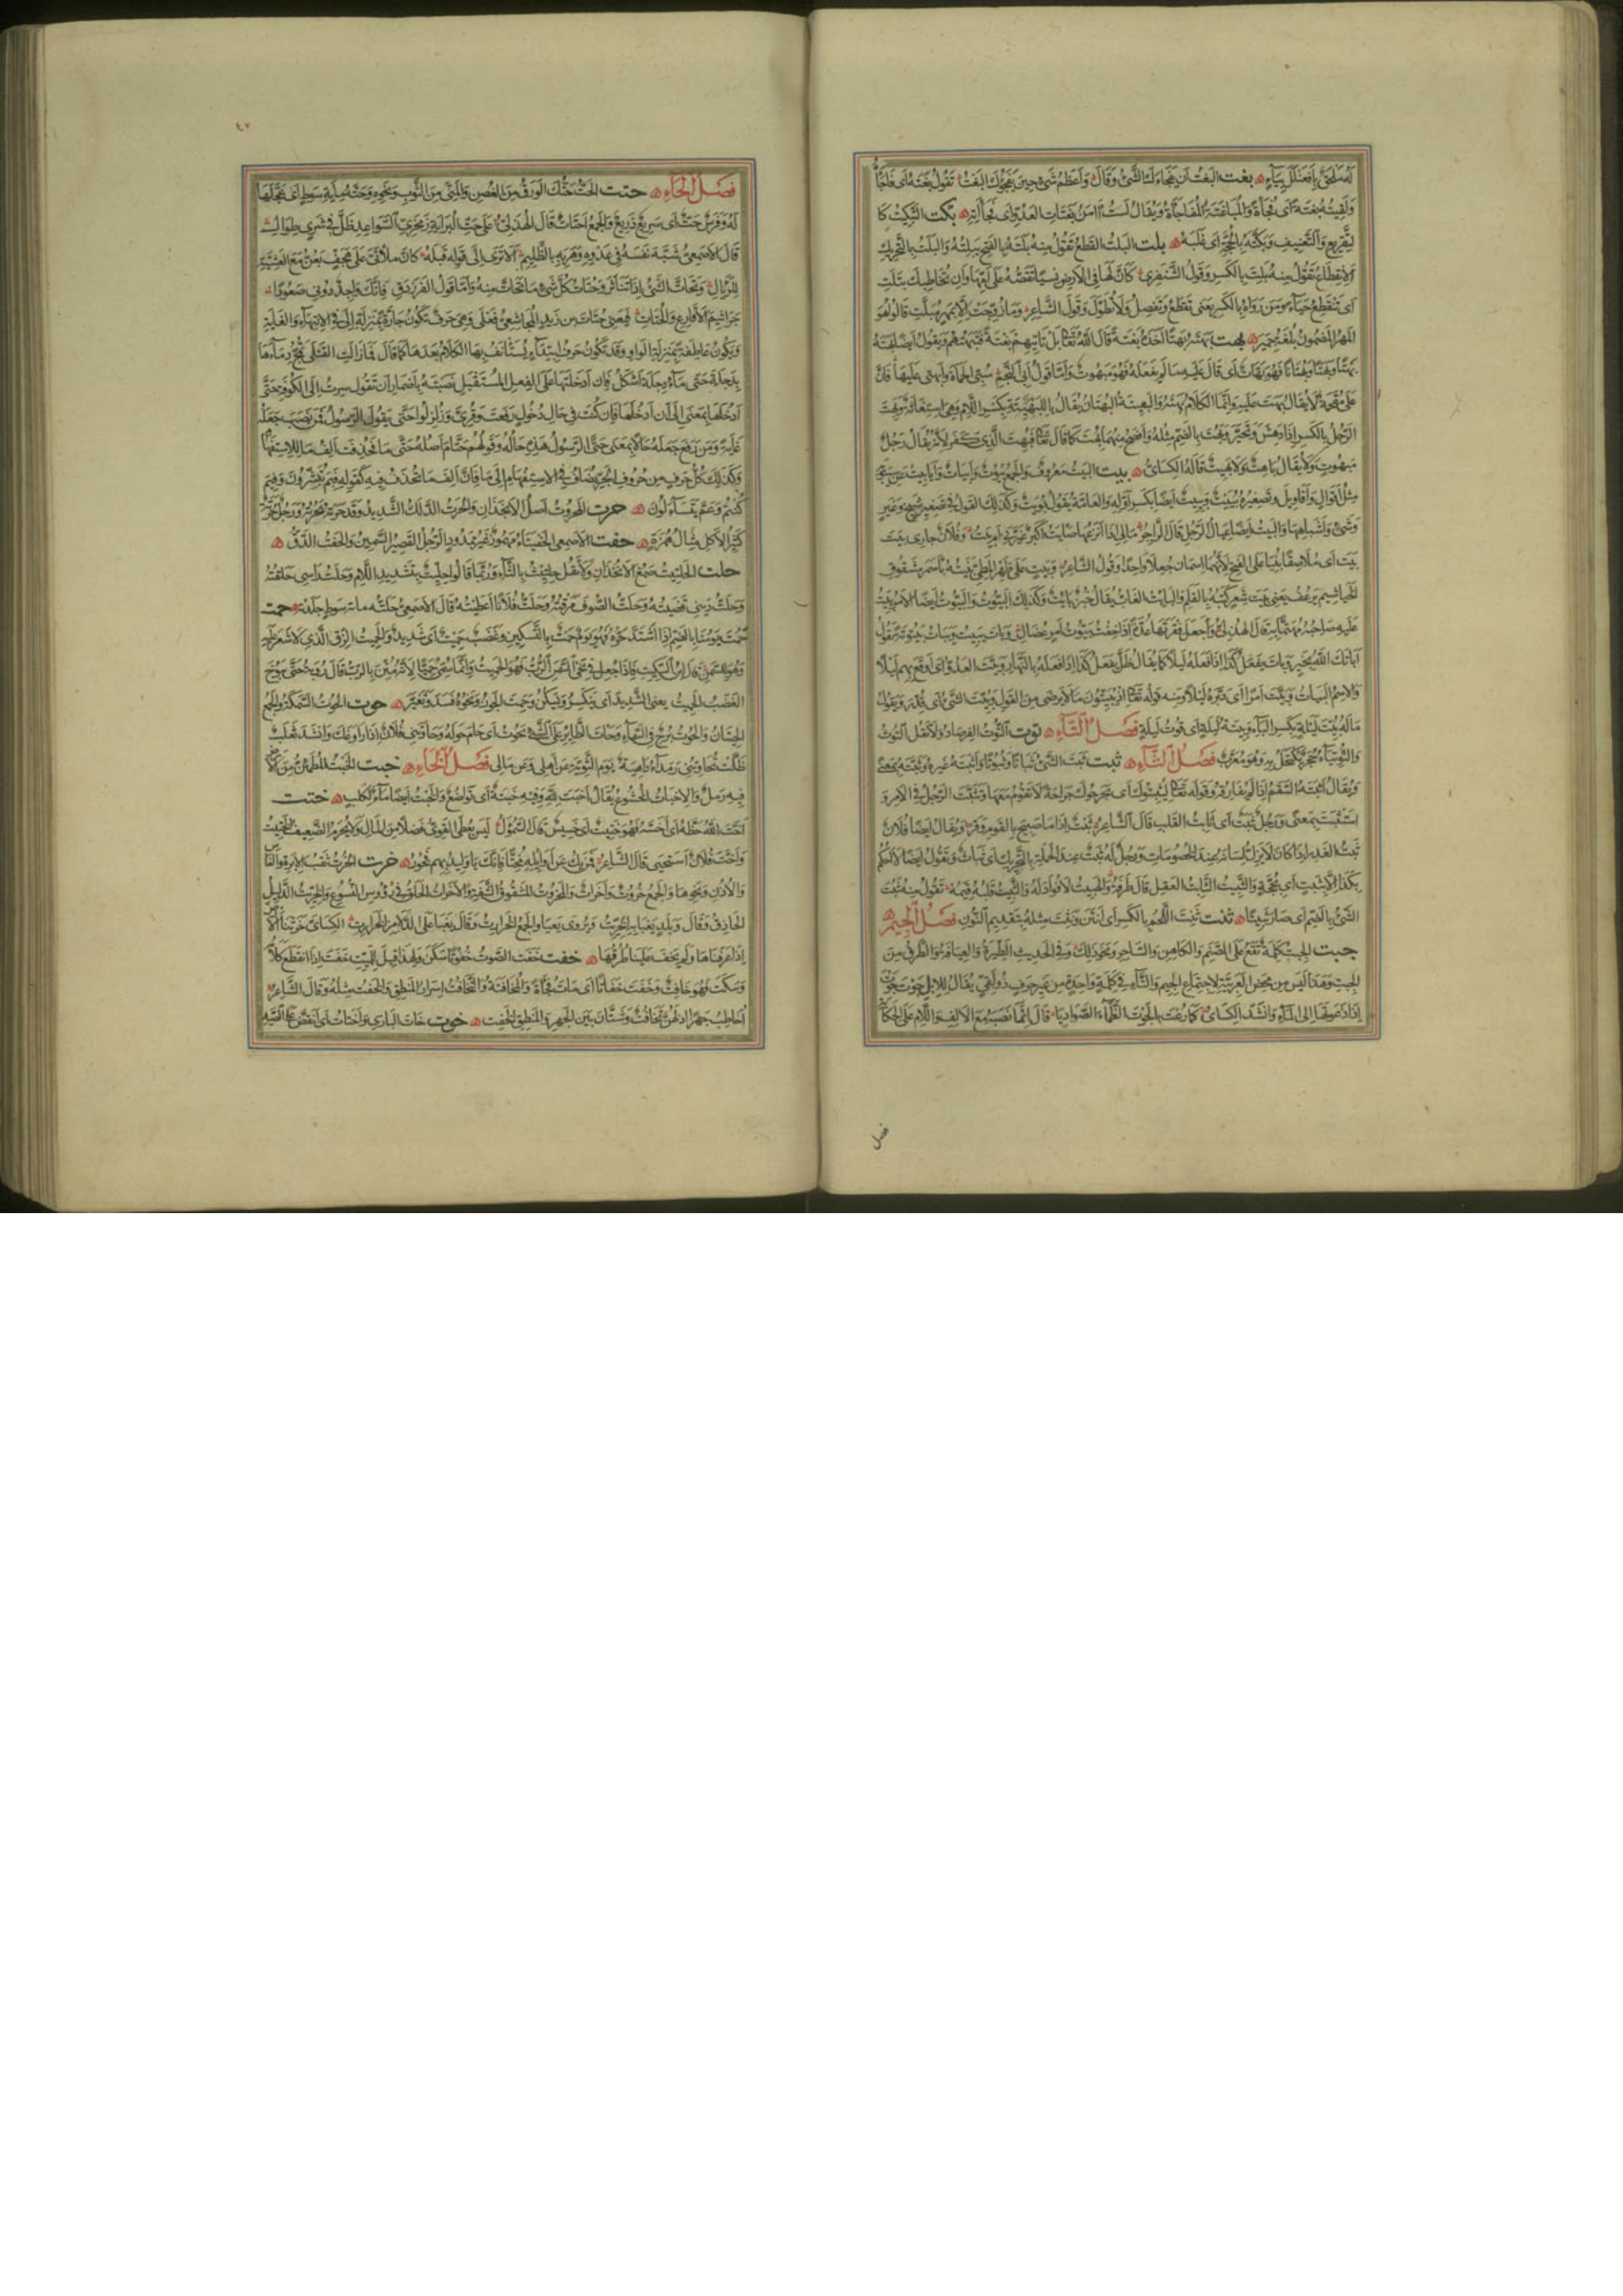 بغت البغت ان يفجأك الشئ وقال واعظم شئ حين يفجؤك البغت تقول بغته اى فاجأه
ولقيته بغتة اى فجأة والمباغتة المفاجأة ويقال لست آمن بغتات العدو اى فجآته بكت التبكيت كا
لتقريع والتعنيف وبكته بالحجة اى غلبه بلت البلت القطع تقول منه بلته بالفتح يبلته والبلت بالتحريك
الانقطاع تقول منه بلت بالكسر وقول الشنفرى كان لها فى الارض نسيا تقصه على امها وان تخاطبك تبلت
اى تنقطع حياء ومن رواه بالكسر يعنى تقطع وتفصل ولا تطول وقول الشاعر وما زوجت الا بمهر مبلت قالوا هو
المهر المضمون بلغة حمير بهت بهته بهتا اخذه بغتة قال الله تعالى بل تأتيهم بغتة فتبهتهم وتقول ايضا بهته
بهتا وبهتا وبهتانا فهو بهات اى قال عليه ما لم يفعله فهو مبهوت واما قول ابى النجم سبى الحماة وابهتى عليها فان
على مقحمة لا يقال بهت عليه وانما الكلام بهته والبهيتة البهتان يقال يا للبهيتة بكسر اللام وهى استغاثة وبهت
الرجل بالكسر اذا دهش وتحير وبهت بالضم مثله وافصح منهما بهت كما قال تعالى فبهت الذى كفر لانه يقال رجل
مبهوت ولا يقال باهت ولا بهيت قاله الكسائى بيت البيت معروف والجمع بيوت وابيات واباييت عن سيبويه
مثل اقوال واقاويل وتصغيره بييت وبييت ايضا بكسر اوله والعامة تقول بويت وكذلك القول فى تصغير شيخ وعير
وشئ واشباهها والبيت ايضا عيال الرجل قال الراجز مالى اذا انزعها صأيت أكبر غيرنى ام بيت وفلان جارى بيت
بيت اى ملاصقا بنيا على الفتح لانهما اسمان جعلا واحدا وقول الشاعر وبيت على ظهر المطى بنيته باسمر مشقوق
الخياشيم يرعف يعنى بيت شعر كتبه بالقلم والبائت الغاب يقال خبز بائت وكذلك البيوت والبيوت ايضا الامر يبيت
عليه صاحبه مهتما به قال الهذلى واجعل فقرتها عدة اذا خفت بيوت امر عضال وبات يبيت ويبات بيتوتة تقول
اباتك الله بخير وبات يفعل كذا اذا فعله ليلا كما يقال ظل يفعل كذا اذا فعله بالنهار وبيت العدو اى اوقع بهم ليلا
والاسم البيات وبيت امرا اى دبره ليلا ومنه قوله تعالى اذ يبيتون ما لا يرضى من القول وبيت الشئ اى قدر وتقول
ماله بيت ليلة بكسر الباء وبيتة ليلة اى قوت ليلة فصل التاء توت التوت الفرصاد ولا تقل التوث
والتوتياء حجر يكتحل به وهو معرب فصل الثاء ثبت ثبت الشئ ثباتا وثبوتا واثبته غيره وثبته بمعنى
ويقال اثبته السقم اذا لم يفارقه وقوله تعالى ليثبتوك اى يجرحوك جراحة لا تقوم معها وتثبت الرجل فى الامر و
استثبت بمعنى ورجل ثبت اى ثابت القلب قال الشاعر ثبت اذا ما صيح بالقوم وقر ويقال ايضا فلان
ثبت الغدر اذا كان لا يزل لسانه عند الخصومات ورجل له ثبت عند الحملة بالتحريك اى ثبات وتقول ايضا لا احكم
بكذا الا بثبت اى بحجة والثبيت الثابت العقل قال طرفة والهبيت لا فؤاد له والثبيت قلبه قيمه تقول منه ثبت
الشئ بالضم اى صار ثبيتا ثنت ثنت اللحم بالكسر اى انتن ونثت مثله بتقديم النون فصل الجيم
جبت الجبت كلمة تقع على الصنم والكاهن والساحر ونحو ذلك وفى الحديث الطيرة والعيافة والطرق من
الجبت وهذا ليس من محض العربية لاجتماع الجيم والتاء فى كلمة واحدة من غير حرف ذولقى يقال للابل جوت جوت
اذا دعوتها الى الماء وانشد الكسائى كما رعت بالجوت الظماء الصواديا قال انما نصبه مع الالف واللام على الحكاية
فصل
٤٧
فصل الحاء حتت الحت حتك الورق من الغصن والمنى من الثوب ونحوه وحته مائة سوط اى عجلها
له وفرس حت اى سريع ذريع والجمع احتات قال الهذلى على حت البراية زمخرى السواعد ظل فى شرى طوال
قال الاصمعى شبه نفسه فى عدوه وهربه بالظليم الا ترى الى قوله قبله كان ملاءتى على هجف يعن مع العشية
للرئال وتحات الشئ اذا تناثر وحتات كل شئ ما تحات منه واما قول الفرزدق فانك واجد دونى صعودا
جراثيم الاقارع والحتات فيعنى حتات بن زيد المجاشعى حتى فعلى وهى حرف تكون جارة بمنزلة الى فى الانتهاء والغاية
وتكون عاطفة بمنزلة الواو وقد تكون حرف ابتداء يستأنف بها الكلام بعدها كما قال فما زالت القتلى تمج دماءها
بدجلة حتى ماء دجلة اشكل فان ادخلتها على الفعل المستقبل نصبته باضمار ان تقول سرت الى الكوفة حتى
ادخلها بمعنى الى ان ادخلها فان كنت فى حال دخول رفعت وقرئ وزلزلوا حتى يقول الرسول فمن نصب جعله
غاية ومن رفع جعله حالا بمعنى حتى الرسول هذه حاله وقولهم حتام اصله حتى ما فحذفت الف ما للاستفهام
وكذلك كل حرف من حروف الجر يضاف فى الاستفهام الى ما فان الف ما تحذف فيه كقوله فبم تبشرون وفيم
كنتم وعم يتساءلون حرت المحروت اصل الانجذان والحرت الدلك الشديد وقد حرته يحرته ورجل حرتة
كثير الاكل مثال همزة حفت الاصمعى الحفيتأ مهموز غير ممدود الرجل القصير السمين والحفت الدق
حلت الحلتيت صمغ الانجذان ولا تقل حلثيث بالثاء وربما قالوا حليت بتشديد اللام وحلت رأسى حلقته
وحلت دينى قضيته وحلت الصوف مزقته وحلت فلانا اعطيته قال الاصمعى حلته مائة سوط جلدته حمت
حمت يومنا بالضم اذا اشتد حره فهو يوم حمت بالتسكين وغضب حميت اى شديد والحميت الزق الذى لا شعر عليه
وهو للسمن قال ابن السكيت فاذا جعل فى نحى السمن الرب فهو الحميت وانما سمى حميتا لانه متن بالرب قال رؤبة حتى يبوخ
الغضب الحميت يعنى الشديد اى ينكسر ويسكن وحمت الجوز ونحوه فسد وتغير حوت الحوت السمكة والجمع
الحيتان والحوت برج فى السماء وحات الطائر على الشئ يحوت اى حام حوله وحاوتنى فلان اذا راوغك وانشد ثعلب
ظلت تحاوتنى رمداء داهية يوم الثوية عن اهلى وعن مالى فصل الخاء خبت الخبت المطمئن من الارض
فيه رمل والاخبات الخشوع يقال اخبت لله وفيه خبتة اى تواضع والخبت ايضا ماء لكلب ختت
اخت الله حظه اى اخسه فهو ختيت اى خسيس قال السموأل ليس يعطى القوى فضلا من المال ولا يحرم الضعيف الختيت
واخت فلان استحيى قال الشاعر فمن يك عن اوائله مختا فانك يا وليد بهم فخور خرت الخرت ثقب الابرة والفاس
والاذن ونحوها والجمع خروت واخرات والمخروت المشقوق الشفة والاخرات الحلق فى رؤس النسوع والخريت الدليل
الحاذق وقال وبلد يغبا به الخريت ويروى يعيا والجمع الخرارت وقال يغبا على الدلامز الخرارت الكسائى خرتنا الارض
اذا عرفناها ولم تخف علينا طرقها خفت خفت الصوت خفوتا سكن ولهذا قيل للميت خفت اذا انقطع كلامه
وسكت فهو خافت وخفت خفاتا اى مات فجأة والمخافتة والتخافت اسرار المنطق والخفت مثله وقال الشاعر
اخاطب جهرا اذ لهن تخافت وشتان بين الجهر والمنطق الخفت خوت خات البازى واختات اى انقض على الصيد